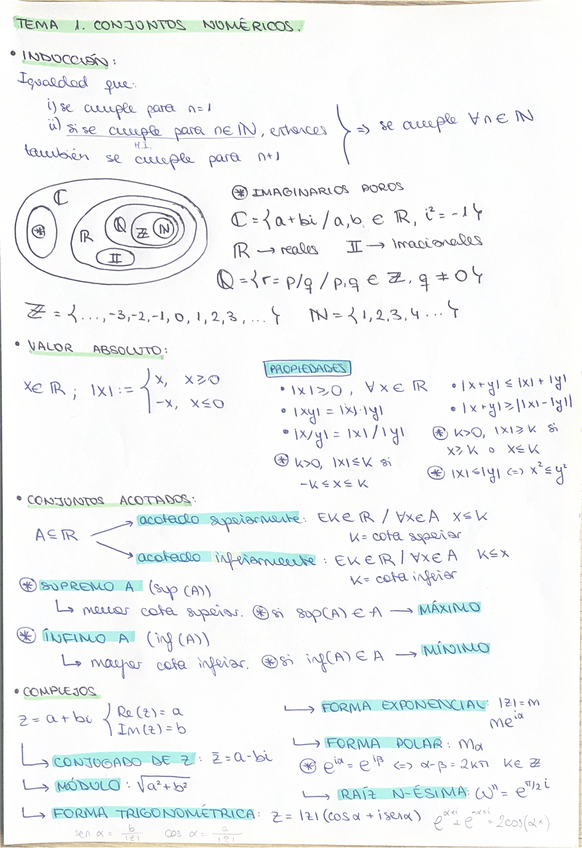 TEMA 1. CONJUNTOS NUMÉRICOS.
• INDUCCIÓN:
Igualdad que:
i) se cumple para n=1
ii) si se cumple para n∈ℕ, entonces
H.I.
también se cumple para n+1
⇒ se cumple ∀n∈ℕ
ℂ
*
ℝ
ℚ
ℤ
ℕ
𝕀
⊛ IMAGINARIOS PUROS
ℂ={a+bi / a,b ∈ ℝ, i²=-1}
ℝ → reales 𝕀 → Irracionales
ℚ={r=p/q / p,q ∈ ℤ, q ≠ 0}
ℤ = {...,-3,-2,-1,0,1,2,3,...} ℕ = {1,2,3,4...}
• VALOR ABSOLUTO:
x∈ℝ; |x| := { x, x≥0
-x, x≤0
PROPIEDADES
• |x|≥0, ∀x∈ℝ
• |xy| = |x|·|y|
• |x/y| = |x|/|y|
⊛ k>0, |x|≤k si
-k≤x≤k
• |x+y| ≤ |x|+|y|
• |x+y| ≥ ||x|-|y||
⊛ k>0, |x|≥k si
x≥k o x≤k
⊛ |x|≤|y| ⇔ x²≤y²
• CONJUNTOS ACOTADOS:
A⊆ℝ
acotado superiormente: ∃k∈ℝ / ∀x∈A x≤k
k= cota superior
acotado inferiormente: ∃k∈ℝ / ∀x∈A k≤x
k= cota inferior
⊛ SUPREMO A (sup(A))
↳ menor cota superior. ⊛ si sup(A)∈A → MÁXIMO
⊛ ÍNFIMO A (inf(A))
↳ mayor cota inferior. ⊛ si inf(A)∈A → MÍNIMO
• COMPLEJOS
z=a+bi { Re(z)=a
Im(z)=b
↳ CONJUGADO DE z: z̄=a-bi
↳ MÓDULO: √a²+b²
↳ FORMA TRIGONOMÉTRICA: z=|z|(cosα+isenα)
sen α = b/|z| cos α = a/|z|
↳ FORMA EXPONENCIAL: |z|=m
me^iα
↳ FORMA POLAR: mα
⊛ e^iα = e^iβ ⇔ α-β=2kπ k∈ℤ
↳ RAÍZ N-ÉSIMA: ωⁿ = e^π/2 i